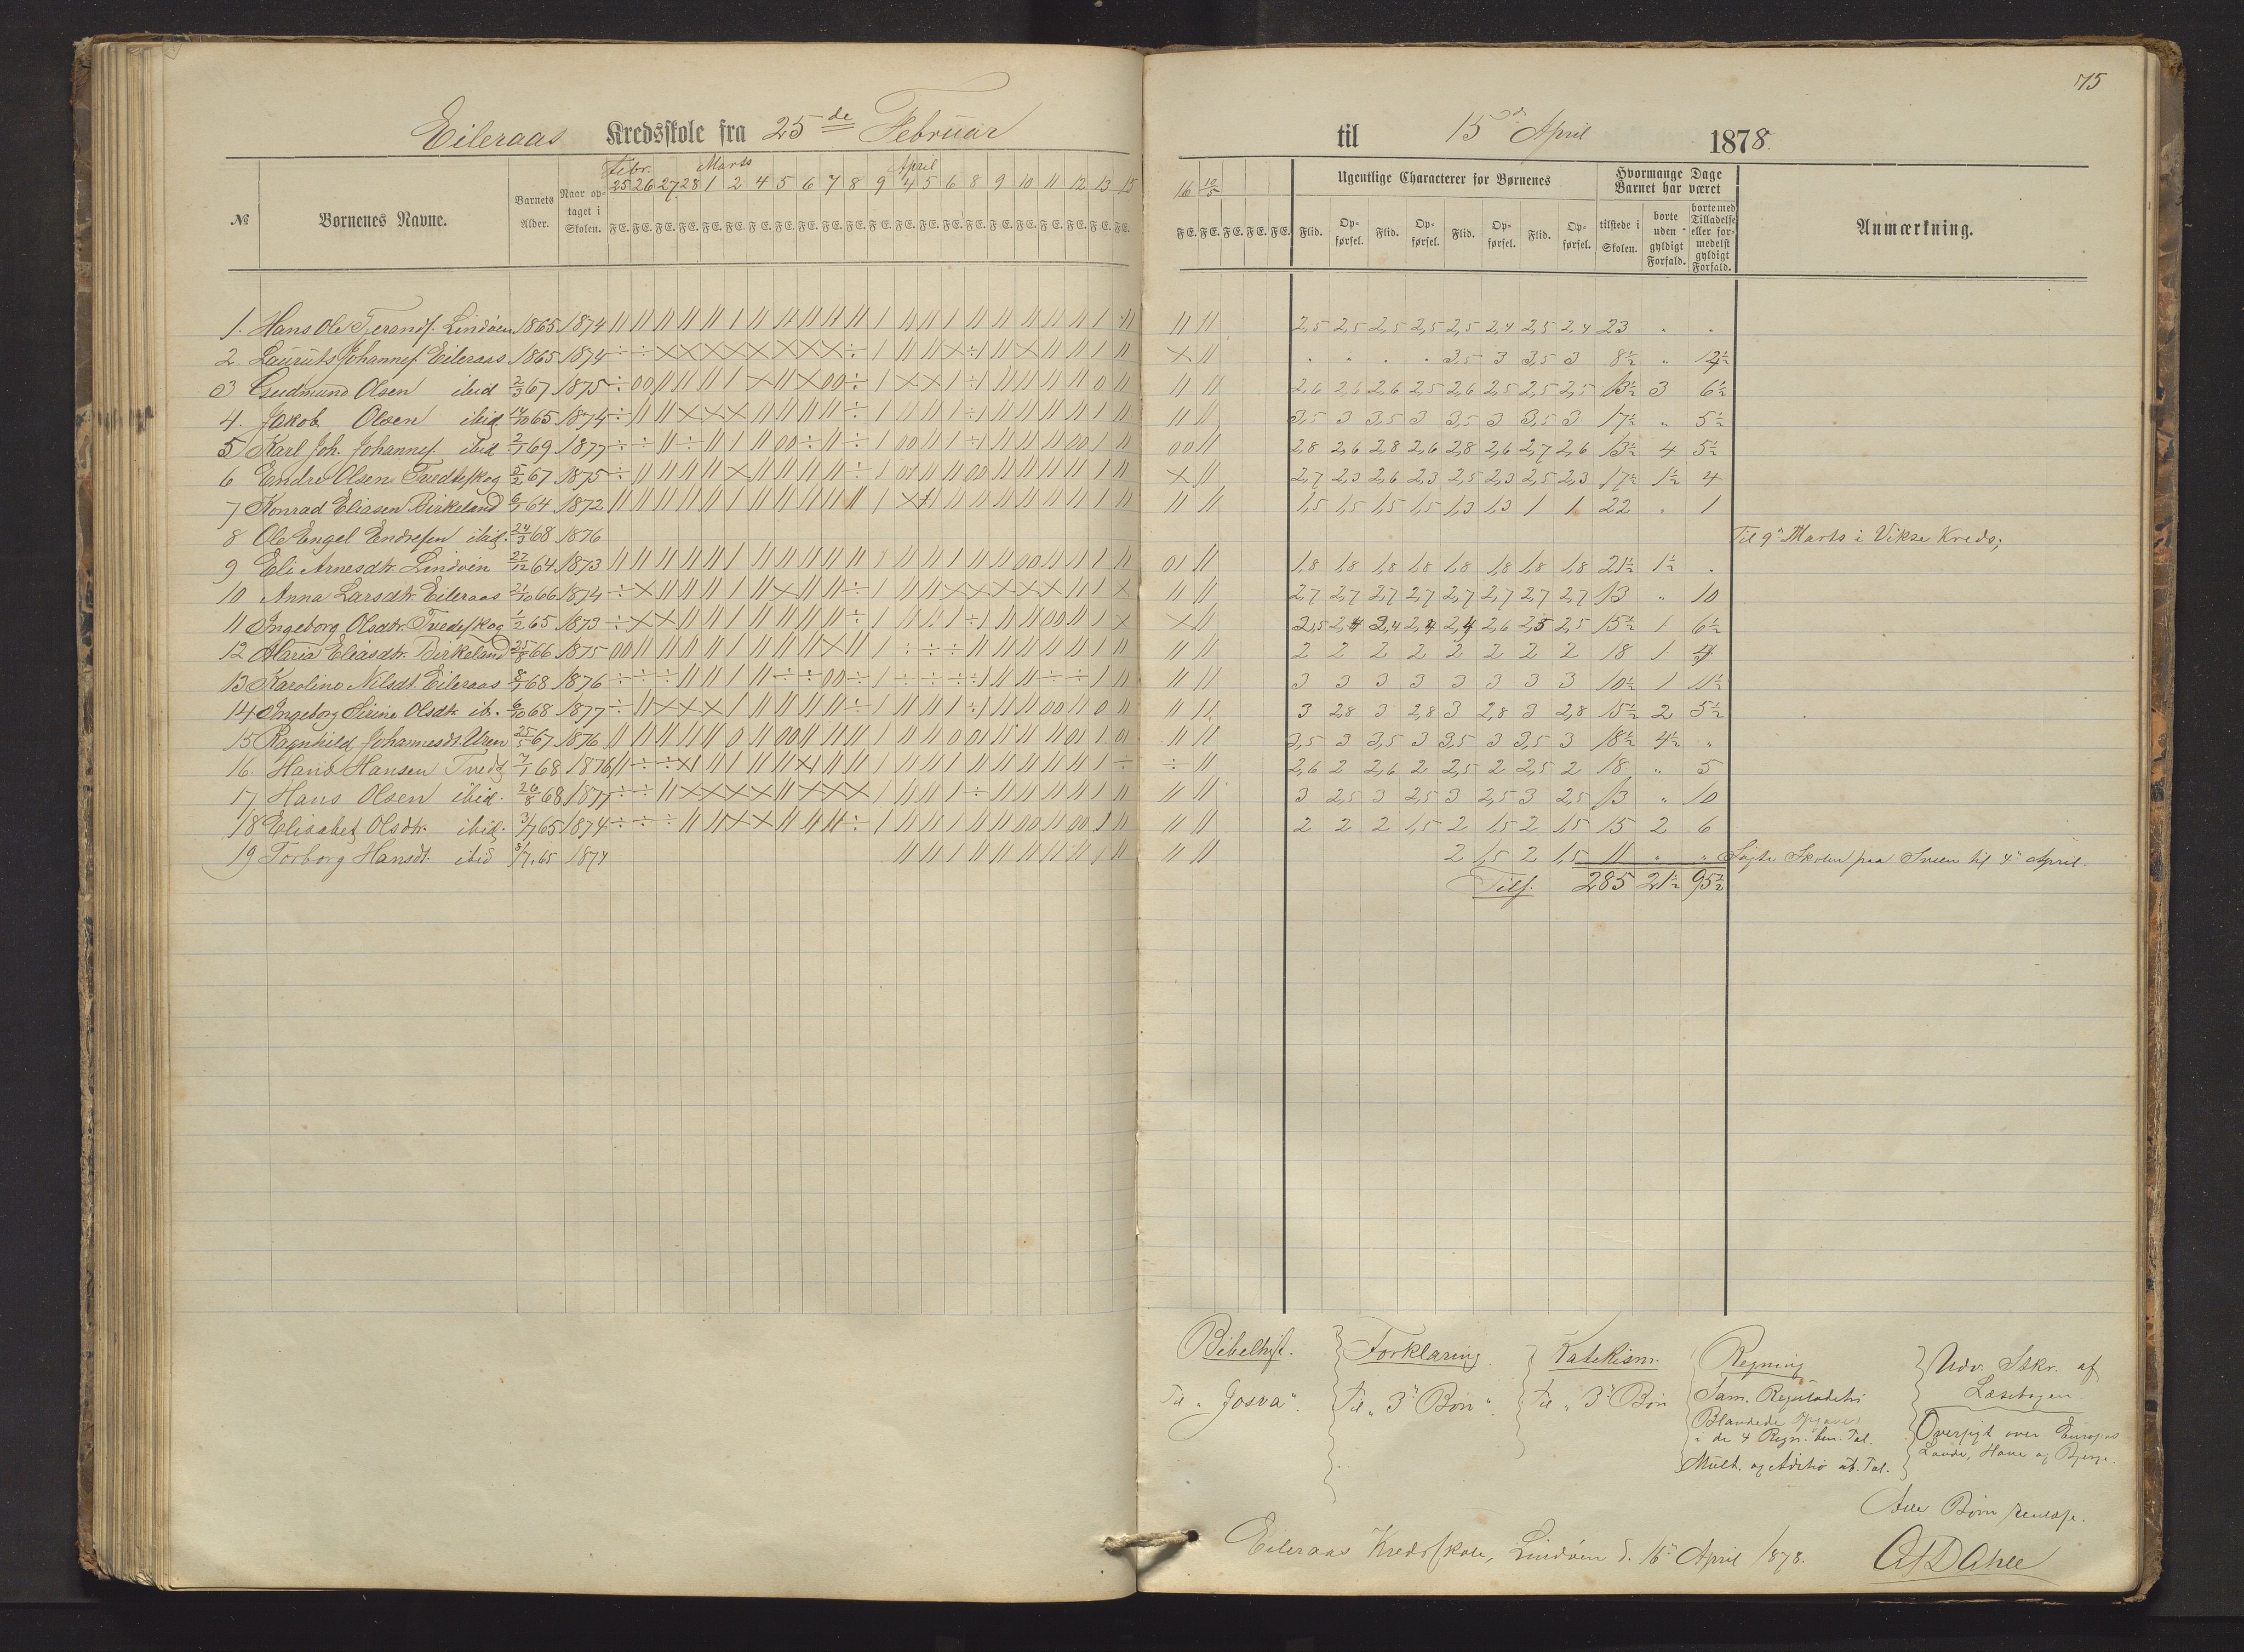 75
Eileraas Kredsskole fra 25de Februar til 15de April 1878.
Febr. Marts April
No Børnenes Navne. Barnets Alder. Naar optaget i Skolen. 25 26 27 28 1 2 4 5 6 7 8 9 4 5 6 8 9 10 11 12 13 15 16 10/5 Ugentlige Characterer for Børnenes Hvormange Dage Barnet har været Anmærkning.
F E. F E. F E. F E. F E. F E. F E. F E. F E. F E. F E. F E. F E. F E. F E. F E. F E. F E. F E. F E. F E. F E. F E. F E. F E. F E. F E. Flid. Opførsel. Flid. Opførsel. Flid. Opførsel. Flid. Opførsel. tilstede i Skolen. borte uden gyldigt Forfald. borte med Tilladelse eller formedelst gyldigt Forfald.
1. Hans Ole Tjerands. Lindøen 1865 1874 2,5 2,5 2,5 2,5 2,5 2,4 2,5 2,4 23 " "
2. Lauruts Johannes. Eileraas 1865 1874 " " " " 3,5 3 3,5 3 8½ "
3 Gudmund Olsen ibid 2/3 67 1875 2,6 2,6 2,6 2,5 2,6 2,5 2,5 2,5 13½ 3 6½
4. Jakob Olsen ibid 14/10 65 1874 3,5 3 3,5 3 3,5 3 3,5 3 17½ " 5½
5 Karl Joh. Johannes. ibid 2/7 69 1877 2,8 2,6 2,8 2,6 2,8 2,6 2,7 2,6 13½ 4 5½
6 Endre Olsen Tvedtskog 5/2 67 1875 2,7 2,3 2,6 2,3 2,5 2,3 2,5 2,3 17½ 1½ 4
7 Konrad Eliasen Birkeland 6/7 64 1872 1,5 1,5 1,5 1,5 1,3 1,3 1 1 22 " 1
8 Ole Engel Endresen ibid. 24/3 68 1876 Til 9de Marts i Vikse Kreds,
9 Eli Arnesdtr. Lindøen 27/12 64 1873 1,8 1,8 1,8 1,8 1,8 1,8 1,8 1,8 21½ 1½ "
10 Anna Larsdtr. Eileraas 21/10 66 1874 2,7 2,7 2,7 2,7 2,7 2,7 2,7 2,7 13 " 10
11 Ingeborg Olsdtr. Tvedtskog 1/2 65 1873 2,5 2,4 2,4 2,4 2,4 2,6 2,5 2,5 15½ 1 6½
12 Maria Eliasdtr. Birkeland 25/8 66 1875 2 2 2 2 2 2 2 2 18 1 4
13 Karoline Nilsdt. Eileraas 8/7 68 1876 3 3 3 3 3 3 3 3 10½ 1 11½
14 Ingeborg Sirine Olsdtr. ib. 6/10 68 1877 3 2,8 3 2,8 3 2,8 3 2,8 15½ 2 5½
15 Ragnhild Johannesdt. Uren 25/5 67 1876 3,5 3 3,5 3 3,5 3 3,5 3 18½ 4½ "
16. Hans Hansen Tvedt 7/1 68 1876 2,6 2 2,6 2 2,5 2 2,5 2 18 " 5
17 Hans Olsen ibid. 26/8 68 1877 3 2,5 3 2,5 3 2,5 3 2,5 13 " 10
18 Elisabet Olsdtr. ibid. 3/7 65 1874 2 2 2 1,5 2 1,5 2 1,5 15 2 6
19 Torborg Hansdt. ibid 1874 2 1,5 2 1,5 11 " " Søgte Skolen paa Sveen til 4de April.
Tils. 285 21½ 95½
Bibelhist.
Til "Josva".
Forklaring
Til "3de Bøn".
Katekism.
Til "3de Bøn
Regning
Sam. Reguladetri
Blandede Opgaver
i de 4 Regn. ben. Tal.
Mult. og Aditio ub. Tal.
Udv. Stkr. af
Læsebogen.
Oversigt over Europas
Lande, Have og Bjerge.
Alle Børn
Eileraas Kredsskole, Lindøen d. 16de April 1878.